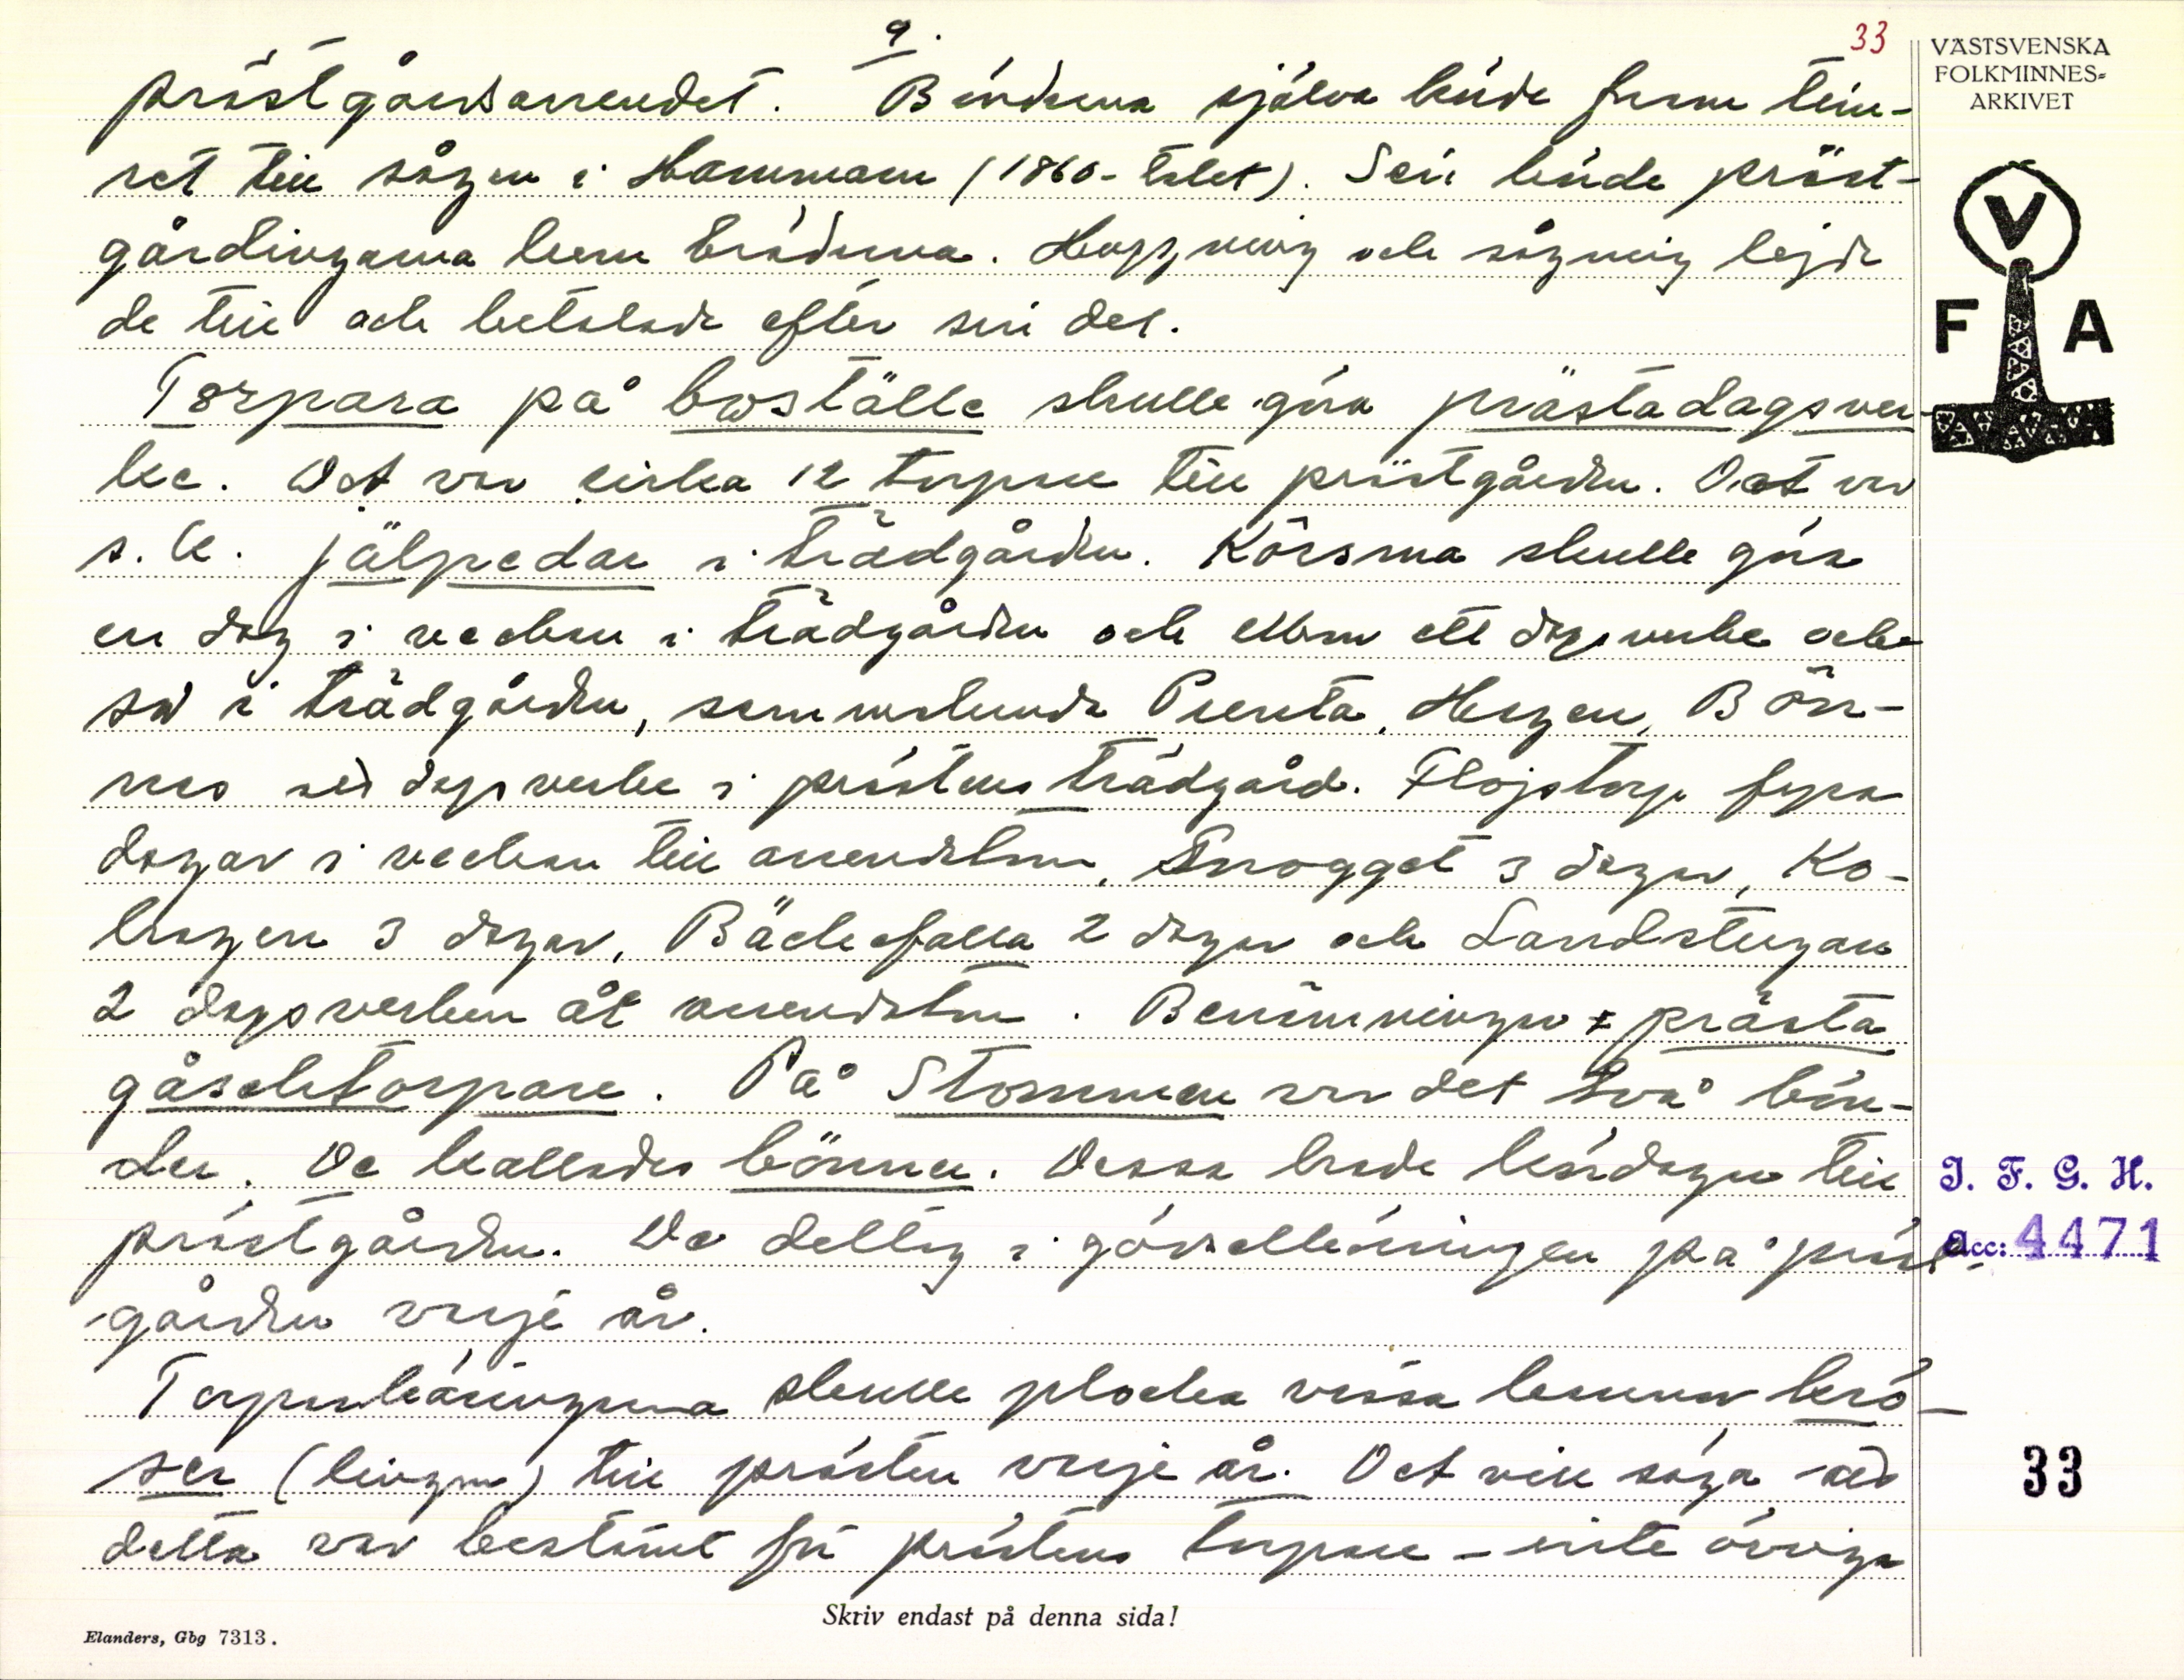 9.
33
prästgårdsarrendet. Bönderna själva körde fram tim-
ret till sågen i Hammarn (1860-talet). Sen körde präst-
gårdingarna hem bräderna. Huggning och sågning lejde
de till och betalade efter sin del.
Torpara på boställe skulle göra prästadagsver-
ke. Det var cirka 12 torpare till prästgården. Det var
s.k. jälpedar i trädgården. Körsma skulle göra
en dag i veckan i trädgården och ett dagsverke ock-
så i trädgården, sammalunda Prenta, Hagen, Bön-
nes ett dagsverke i prästens trädgård. Flöjstorp fyra
dagar i veckan till arrendatorn, Snogget 3 dagar, Ko-
hagen 3 dagar, Bäckefalla 2 dagar och Landstugan
2 dagsverken åt arrendatorn. Benämningen prästa
gåscletorpare. På Stommen var det två bön-
der. De kallades bönner. Dessa hade kördagar till
prästgården. De deltog i gödselkörningen på präst-
gården varje år.
Torparkäringarna skulle plocka vissa kannor krö-
ser (lingon) till prästen varje år. Det vill säga att
detta var bestämt för prästens torpare – inte övriga
Skriv endast på denna sida!
Elanders, Gbg 7313.
VÄSTSVENSKA
FOLKMINNES-
ARKIVET
V
F A
I. F. G. H.
Acc: 4471
33